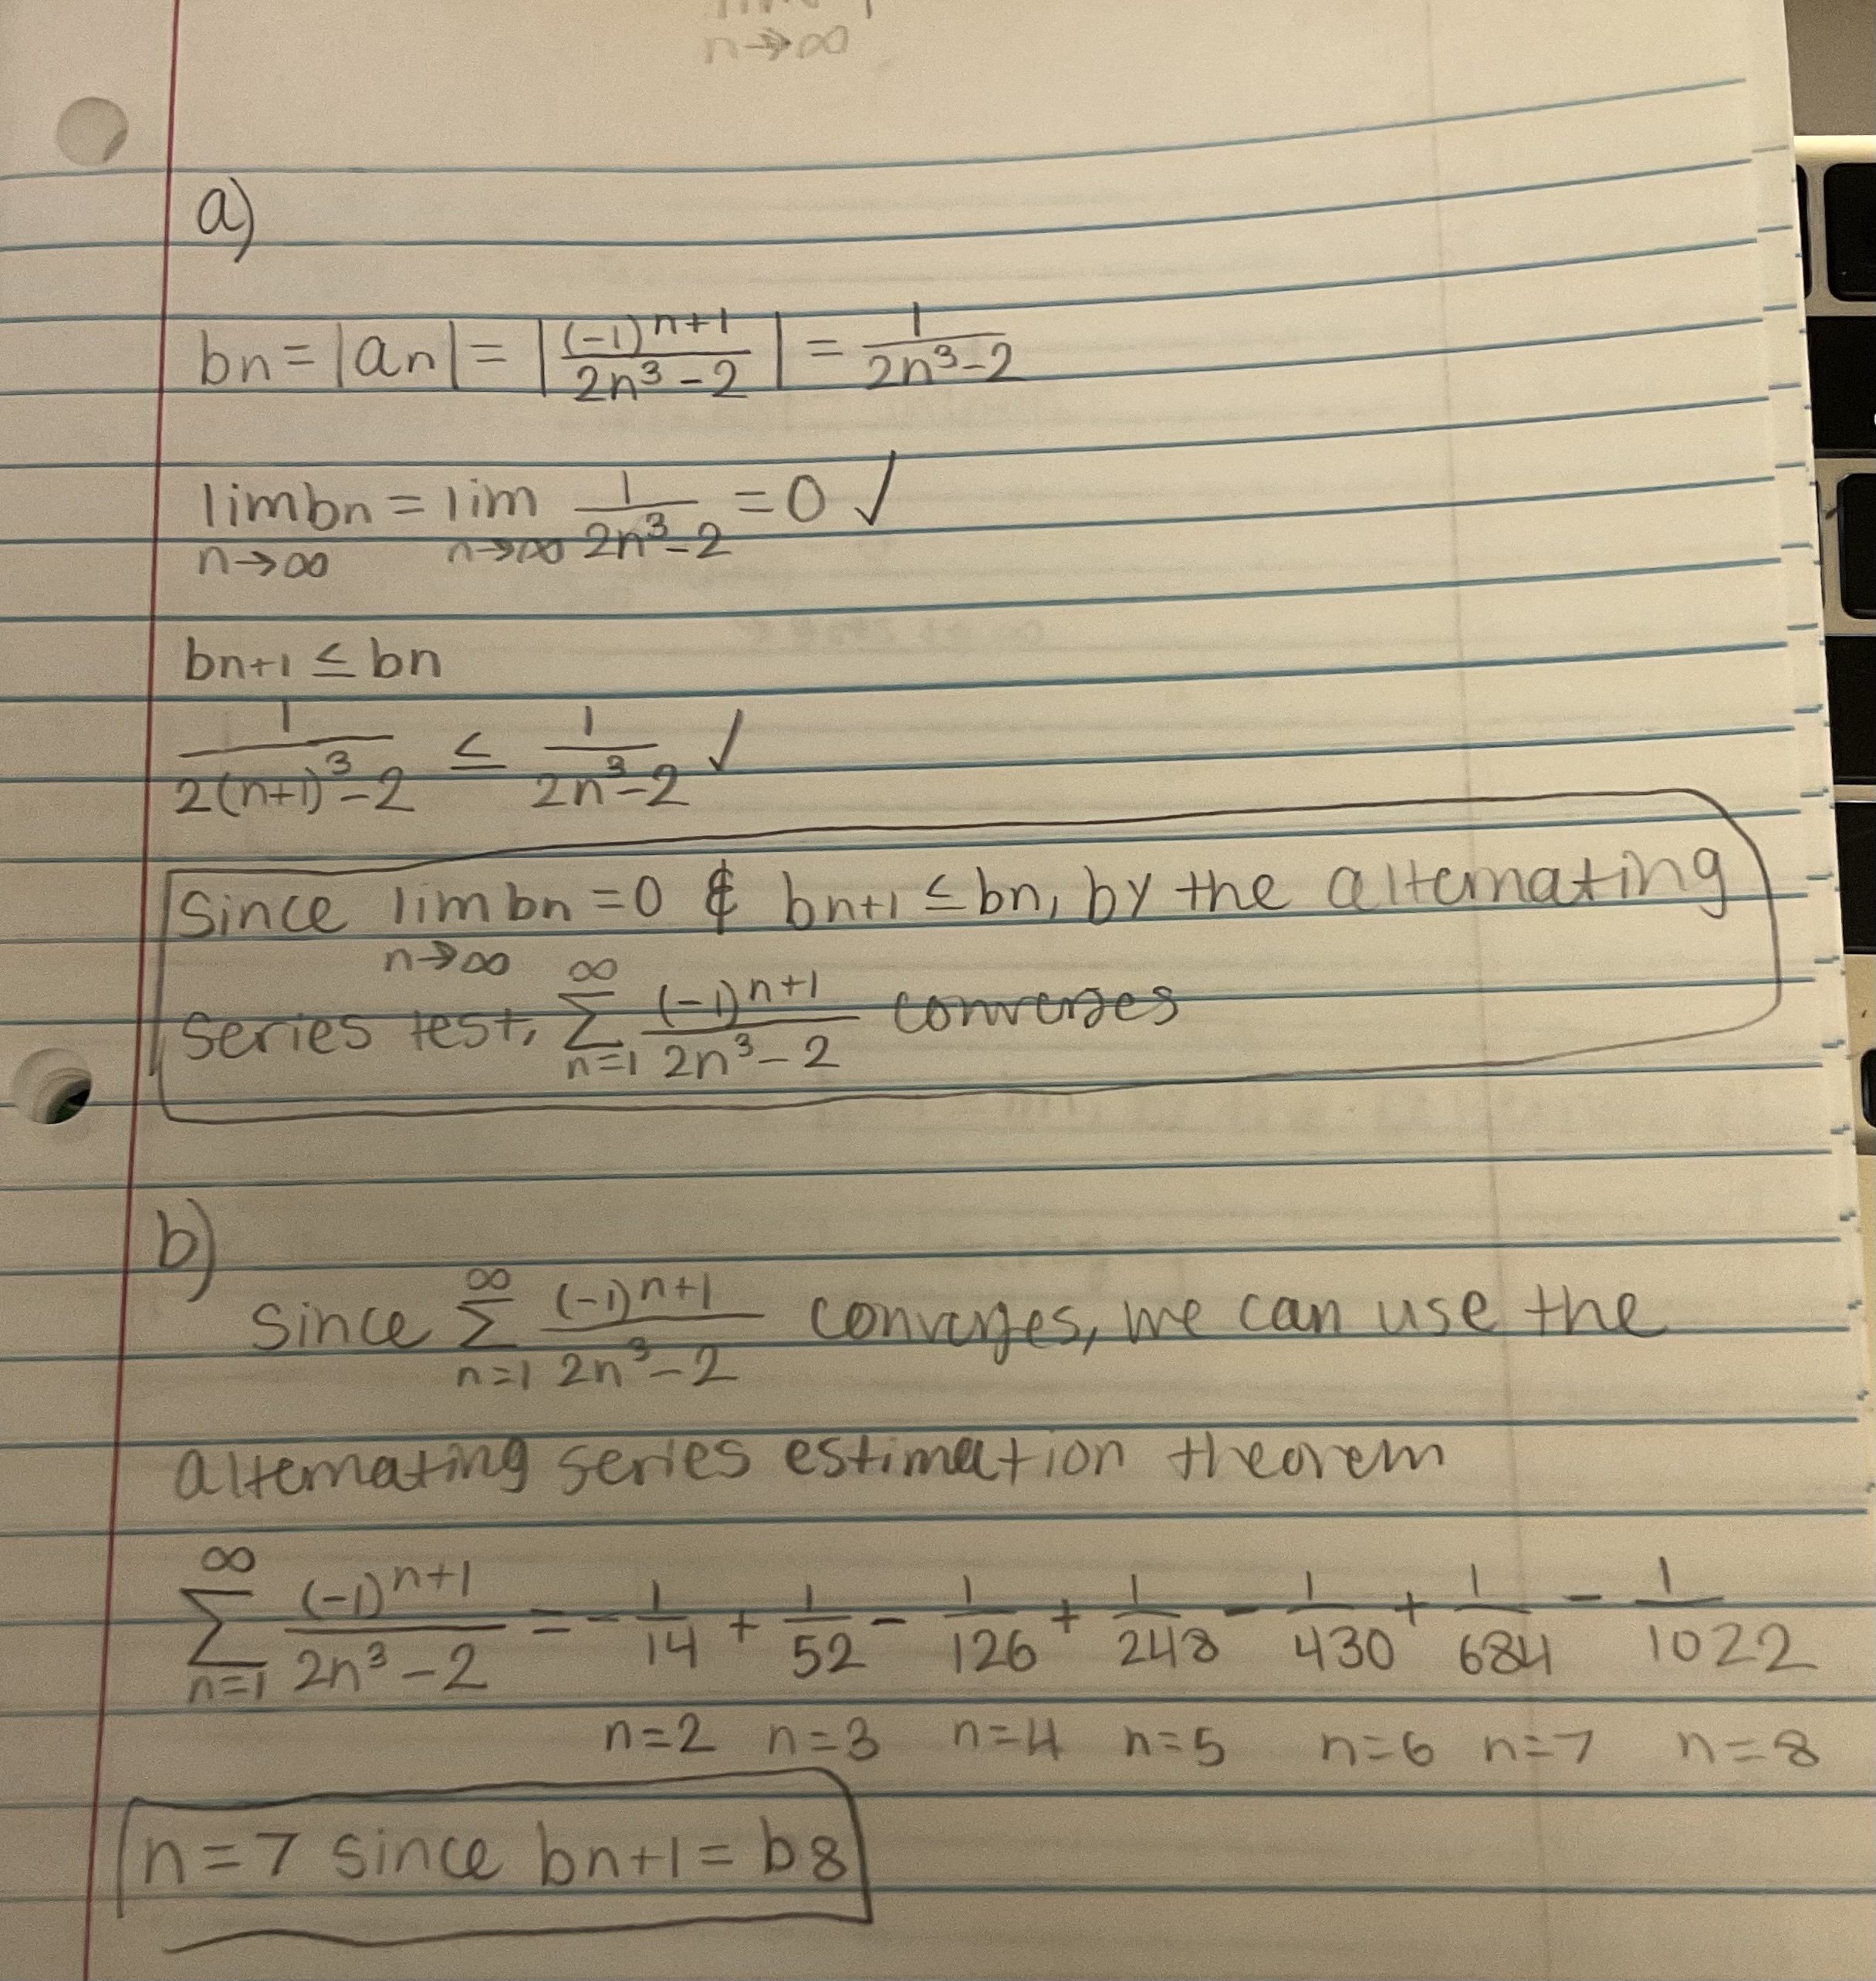 n→∞
a)
bn = |an| = |(-1)^{n+1}/(2n³-2)| = 1/(2n³-2)
lim_{n→∞} bn = lim_{n→∞} 1/(2n³-2) = 0 ✓
bn+1 ≤ bn
1/(2(n+1)³-2) ≤ 1/(2n³-2) ✓
Since lim_{n→∞} bn = 0 & bn+1 ≤ bn, by the alternating
series test, ∑_{n=1}^{∞} (-1)^{n+1}/(2n³-2) converges
b)
Since ∑_{n=1}^{∞} (-1)^{n+1}/(2n³-2) converges, we can use the
alternating series estimation theorem
∑_{n=1}^{∞} (-1)^{n+1}/(2n³-2) = -1/14 + 1/52 - 1/126 + 1/248 - 1/430 + 1/684 - 1/1022
n=2 n=3 n=4 n=5 n=6 n=7 n=8
n=7 since bn+1 = b8